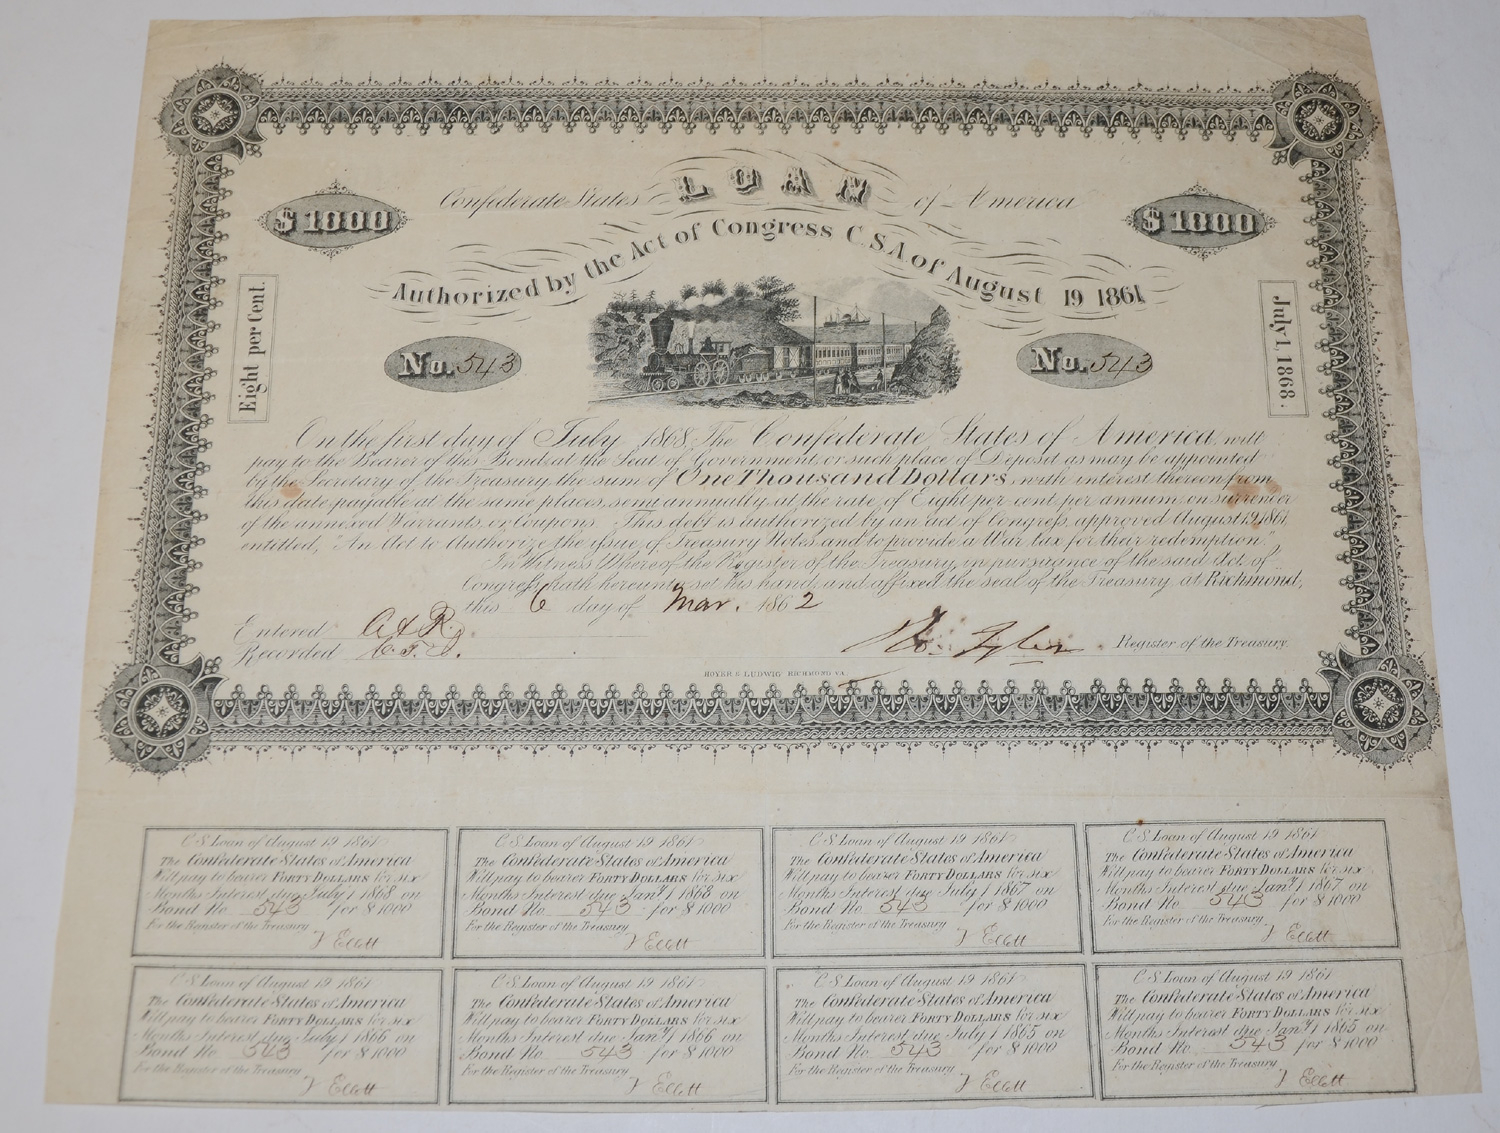 Confederate States LOAN of America
$1000 $1000
Authorized by the Act of Congress C.S.A of August 19 1861
Eight per Cent.
July 1, 1868.
No. 543 No. 543
On the first day of July, 1868, The Confederate States of America, will
pay to the Bearer of this Bond, at the Seat of Government, or such place of Deposit as may be appointed
by the Secretary of the Treasury, the sum of One Thousand Dollars, with interest thereon from
this date, payable at the same places, semi annually, at the rate of Eight per cent. per annum, on surrender
of the annexed Warrants, or Coupons. This debt is authorized by an act of Congress, approved August 19, 1861,
entitled, "An Act to Authorize the issue of Treasury Notes, and to provide a War tax for their redemption."
In Witness Whereof the Register of the Treasury, in pursuance of the said Act of
Congress, hath hereunto set his hand, and affixed the seal of the Treasury, at Richmond,
this 6 day of Mar. 1862
Entered
Recorded
Ro. Tyler Register of the Treasury.
HOYER & LUDWIG RICHMOND VA.
C. S. Loan of August 19 1861
The Confederate States of America
Will pay to bearer FORTY DOLLARS for six
Months Interest due July 1 1868 on
Bond No 543 for $1000
For the Register of the Treasury
J Ellett
C. S. Loan of August 19 1861
The Confederate States of America
Will pay to bearer FORTY DOLLARS for six
Months Interest due Jany 1 1868 on
Bond No 543 for $1000
For the Register of the Treasury
J Ellett
C. S. Loan of August 19 1861
The Confederate States of America
Will pay to bearer FORTY DOLLARS for six
Months Interest due July 1 1867 on
Bond No 543 for $1000
For the Register of the Treasury
J Ellett
C. S. Loan of August 19 1861
The Confederate States of America
Will pay to bearer FORTY DOLLARS for six
Months Interest due Jany 1 1867 on
Bond No 543 for $1000
For the Register of the Treasury
J Ellett
C. S. Loan of August 19 1861
The Confederate States of America
Will pay to bearer FORTY DOLLARS for six
Months Interest due July 1 1866 on
Bond No 543 for $1000
For the Register of the Treasury
J Ellett
C. S. Loan of August 19 1861
The Confederate States of America
Will pay to bearer FORTY DOLLARS for six
Months Interest due Jany 1 1866 on
Bond No 543 for $1000
For the Register of the Treasury
J Ellett
C. S. Loan of August 19 1861
The Confederate States of America
Will pay to bearer FORTY DOLLARS for six
Months Interest due July 1 1865 on
Bond No 543 for $1000
For the Register of the Treasury
J Ellett
C. S. Loan of August 19 1861
The Confederate States of America
Will pay to bearer FORTY DOLLARS for six
Months Interest due Jany 1 1865 on
Bond No 543 for $1000
For the Register of the Treasury
J Ellett